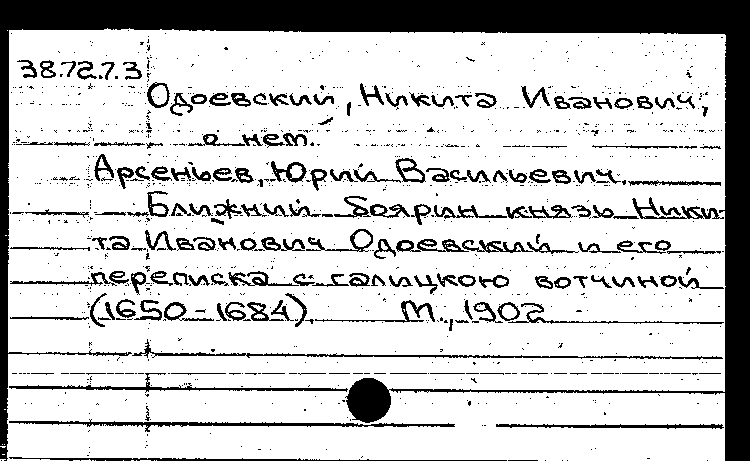 38.72.7.3
Одоевский, Никита Иванович,
о нем.
Арсеньев, Юрий Васильевич.
Ближний боярин князь Ники-
та Иванович Одоевский и его
переписка с галицкою вотчиной
(1650-1684). М., 1902